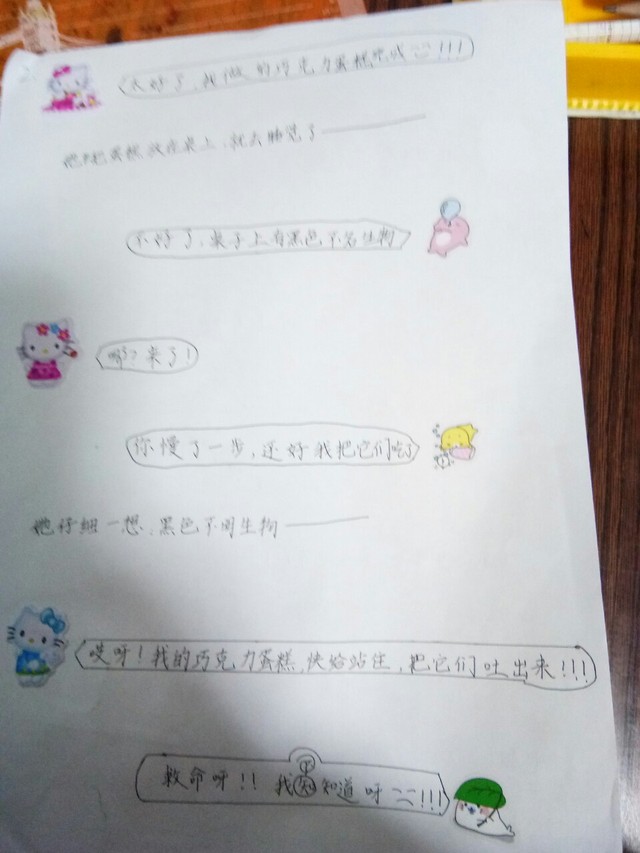 太好了,我做的巧克力蛋糕完成二!!!
她把蛋糕放在桌上,就去睡觉了——
不好了,桌子上有黑色不名生物
哪?来了!
你慢了一步,还好我把它们吃了
她仔细一想,黑色不明生物——
哎呀!我的巧克力蛋糕,快给站住,把它们吐出来!!!
救命呀!!我不知道呀二!!!